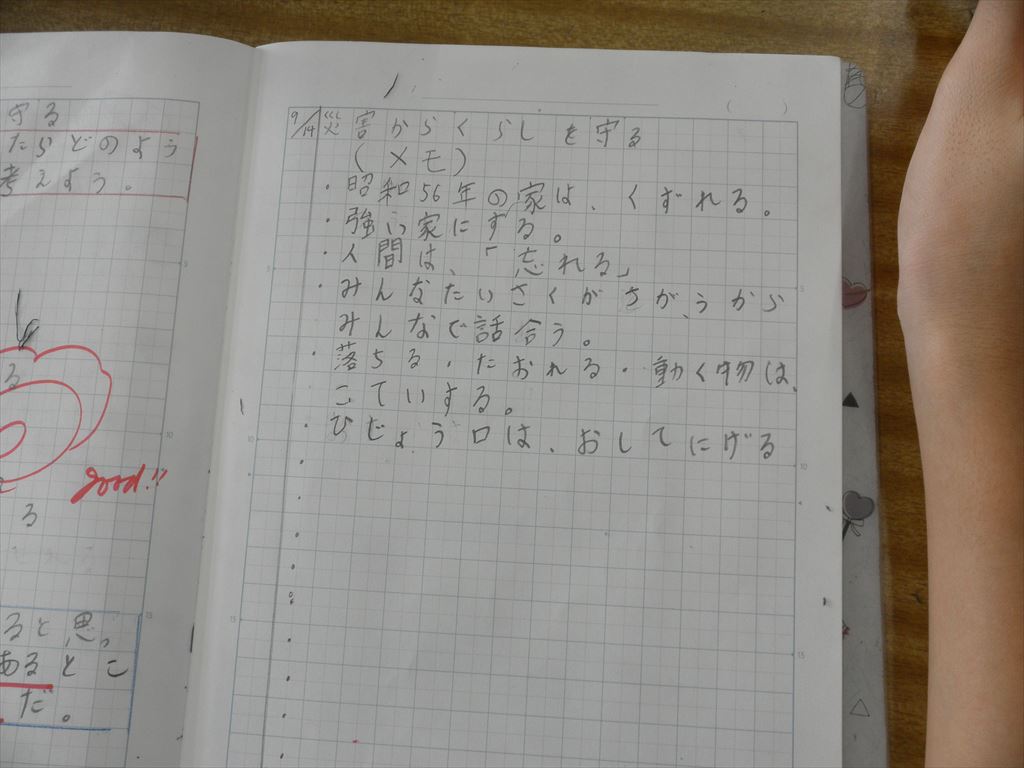 守る
たらどのよう
考えよう。
る
good!!
る
ると思っ
あるとこ
だ。
9/14 災害からくらしを守る
(メモ)
・昭和56年の家は、くずれる。
・強い家にする。
・人間は、「忘れる」
・みんなたいさくがちがうから
みんなで話合う。
・落ちる・たおれる・動く物は、
こていする。
・ひじょう口は、おしてにげる